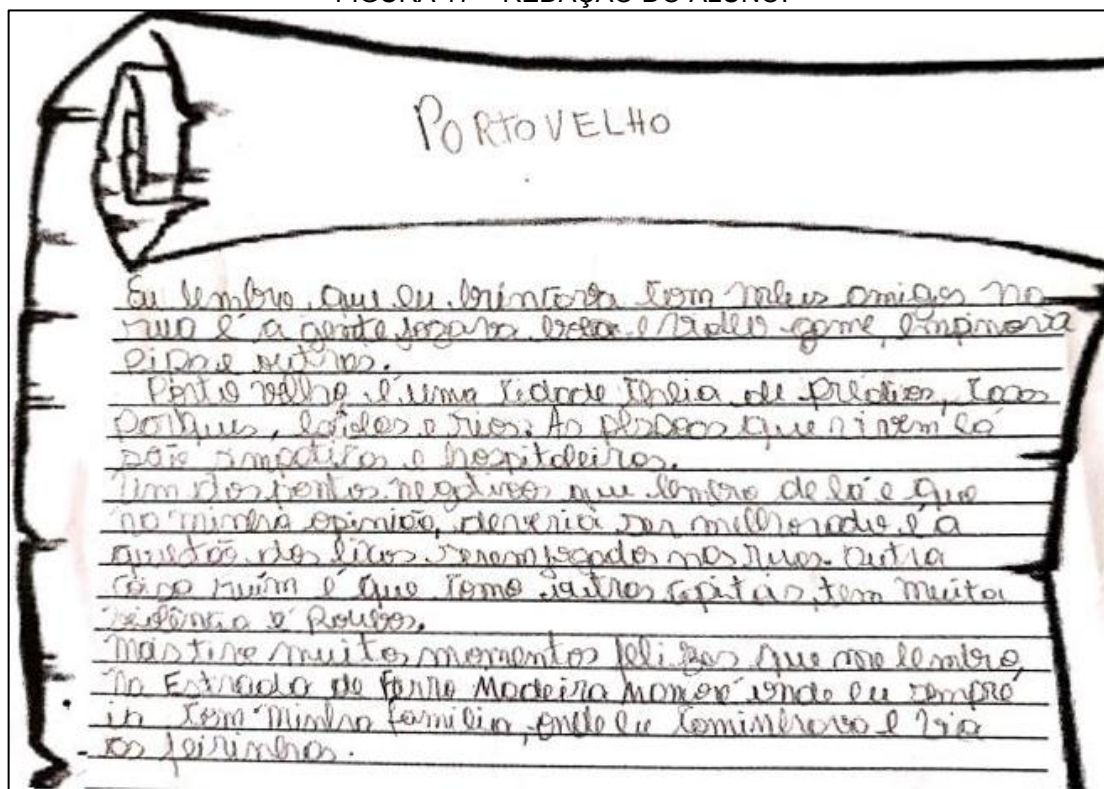 FIGURA 17 – REDAÇÃO DO ALUNO.
PORTO VELHO
Eu lembro, que eu brincava com meus amigos na
rua e a gente jogava bola e video game, empinava
pipa e outros.
Porto velho é uma cidade cheia de prédios, casas
parques, e rios. As pessoas que vivem lá
são simpaticas e hospitaleiras.
Um dos pontos negativos que lembro de lá e que
na minha opinião, deveria ser melhorado, é a
questão dos lixos serem jogados nas ruas. Outra
coisa ruim é que como outras capitais, tem muita
violência e Roubos.
Mas tive muitos momentos felizes que me lembro,
na Estrada de Ferro Madeira Mamoré onde eu sempre
ia com minha família, onde eu caminhava e via
as feirinhas.